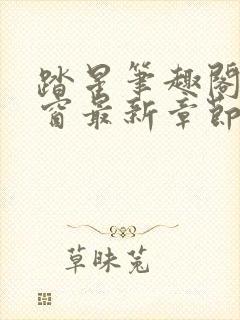 踏星笔趣阁
窗最新章节
草昧菟